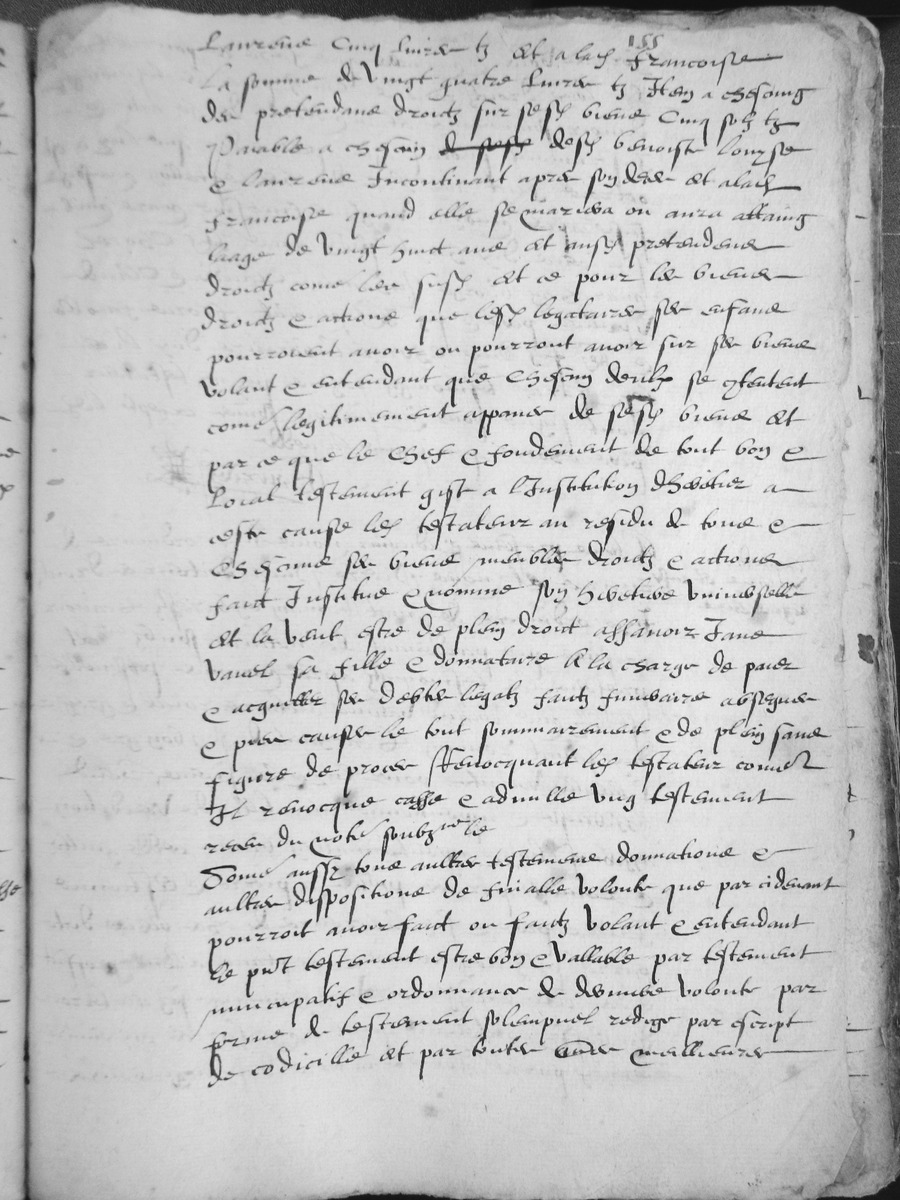 155
Laurens Cinq livres tz et a lad francoise
la somme de vingt quatre livres tz Item a chescung
des pretendans droictz sur sesd biens Cinq solz tz
Paiable a chescun desd benoiste louyse
& laurens Incontinant apres son deces et a lad
francoise quand elle se mariera ou aura attaing
laage de vingt huict ans et ausd pretendens
droictz come les susd et ce pour les biens
droictz & actions que lesd legataires ses enfans
pourroient avoir ou pourront avoir sur ses biens
volant & entendant que Chescun deulx se contentent
come legitimement appanes de sesd biens et
par ce que le Chef & fondement de tout bon &
loial testement gist a l'Institution dheritier a
ceste cause led testateur au residu de tous &
Chescuns ses biens meubles droictz & actions
faict Institue & nomme son heritiere universelle
et la veut estre de plein droict assavoir Jane
vanel sa fille & donnatare A la charge de paier
& acquitter ses debtes legatz faictz funeraire obseques
& pies causes le tout sommairement & de plein sans
figure de proces Revocquant led testateur come
Il revocque casse & adnulle ung testement
receu du note soubzne le
Come aussy tous aultres testemens donnations &
aultres dispositions de finalle volonte que par cidevant
pourroit avoir faict ou faictz volant & entendant
le pnt testement estre bon & vallable par testement
nuncupatif & ordonnance de derniere volonte par
forme de testement solempnel redige par escript
de codicille et par toutes meillieures